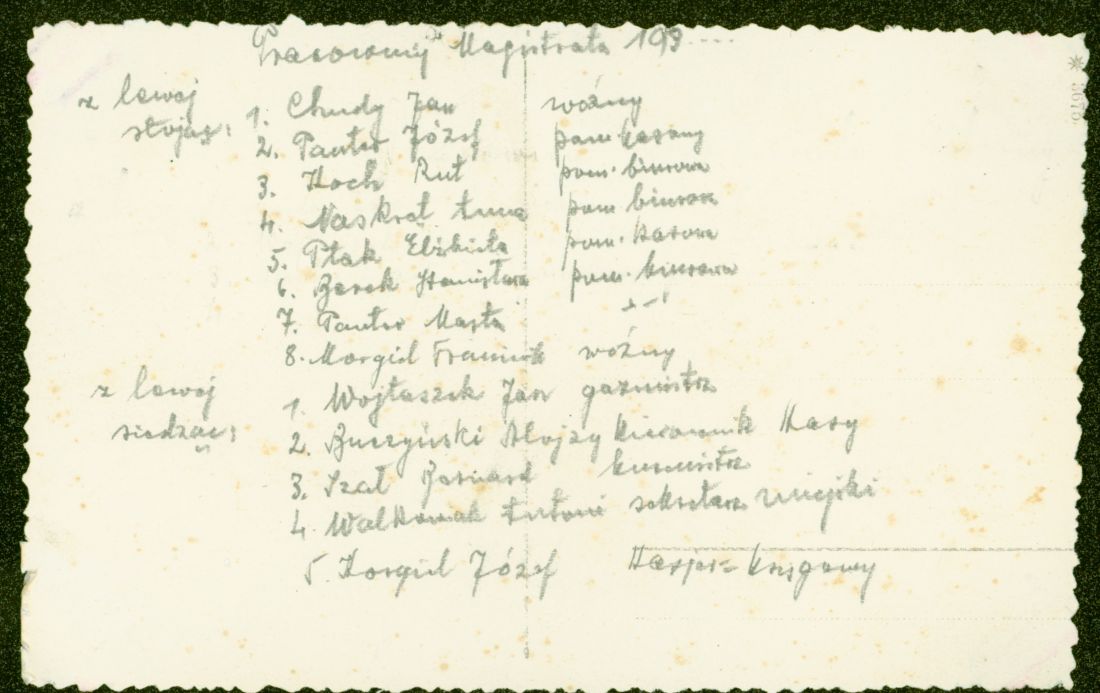 Pracownicy Magistratu 193....
z lewej
stojąc:
1. Chudy Jan woźny
2. Panter Józef pom kasowy
3. Koch Rut pom. biurowa
4. Naskręt Anna pom biurowa
5. Ptak Elżbieta pom. kasowa
6. Berek Stanisława pom. biurowa
7. Panter Marta -"-
8. Morgiel Franciszek woźny
z lewej
siedząc:
1. Wojtaszek Jan gazmistrz
2. Buczyński Alojzy kierownik Kasy
3. Szał Bernard burmistrz
4. Walkowiak Antoni sekretarz miejski
5. Korgiel Józef Kasjer-księgowy